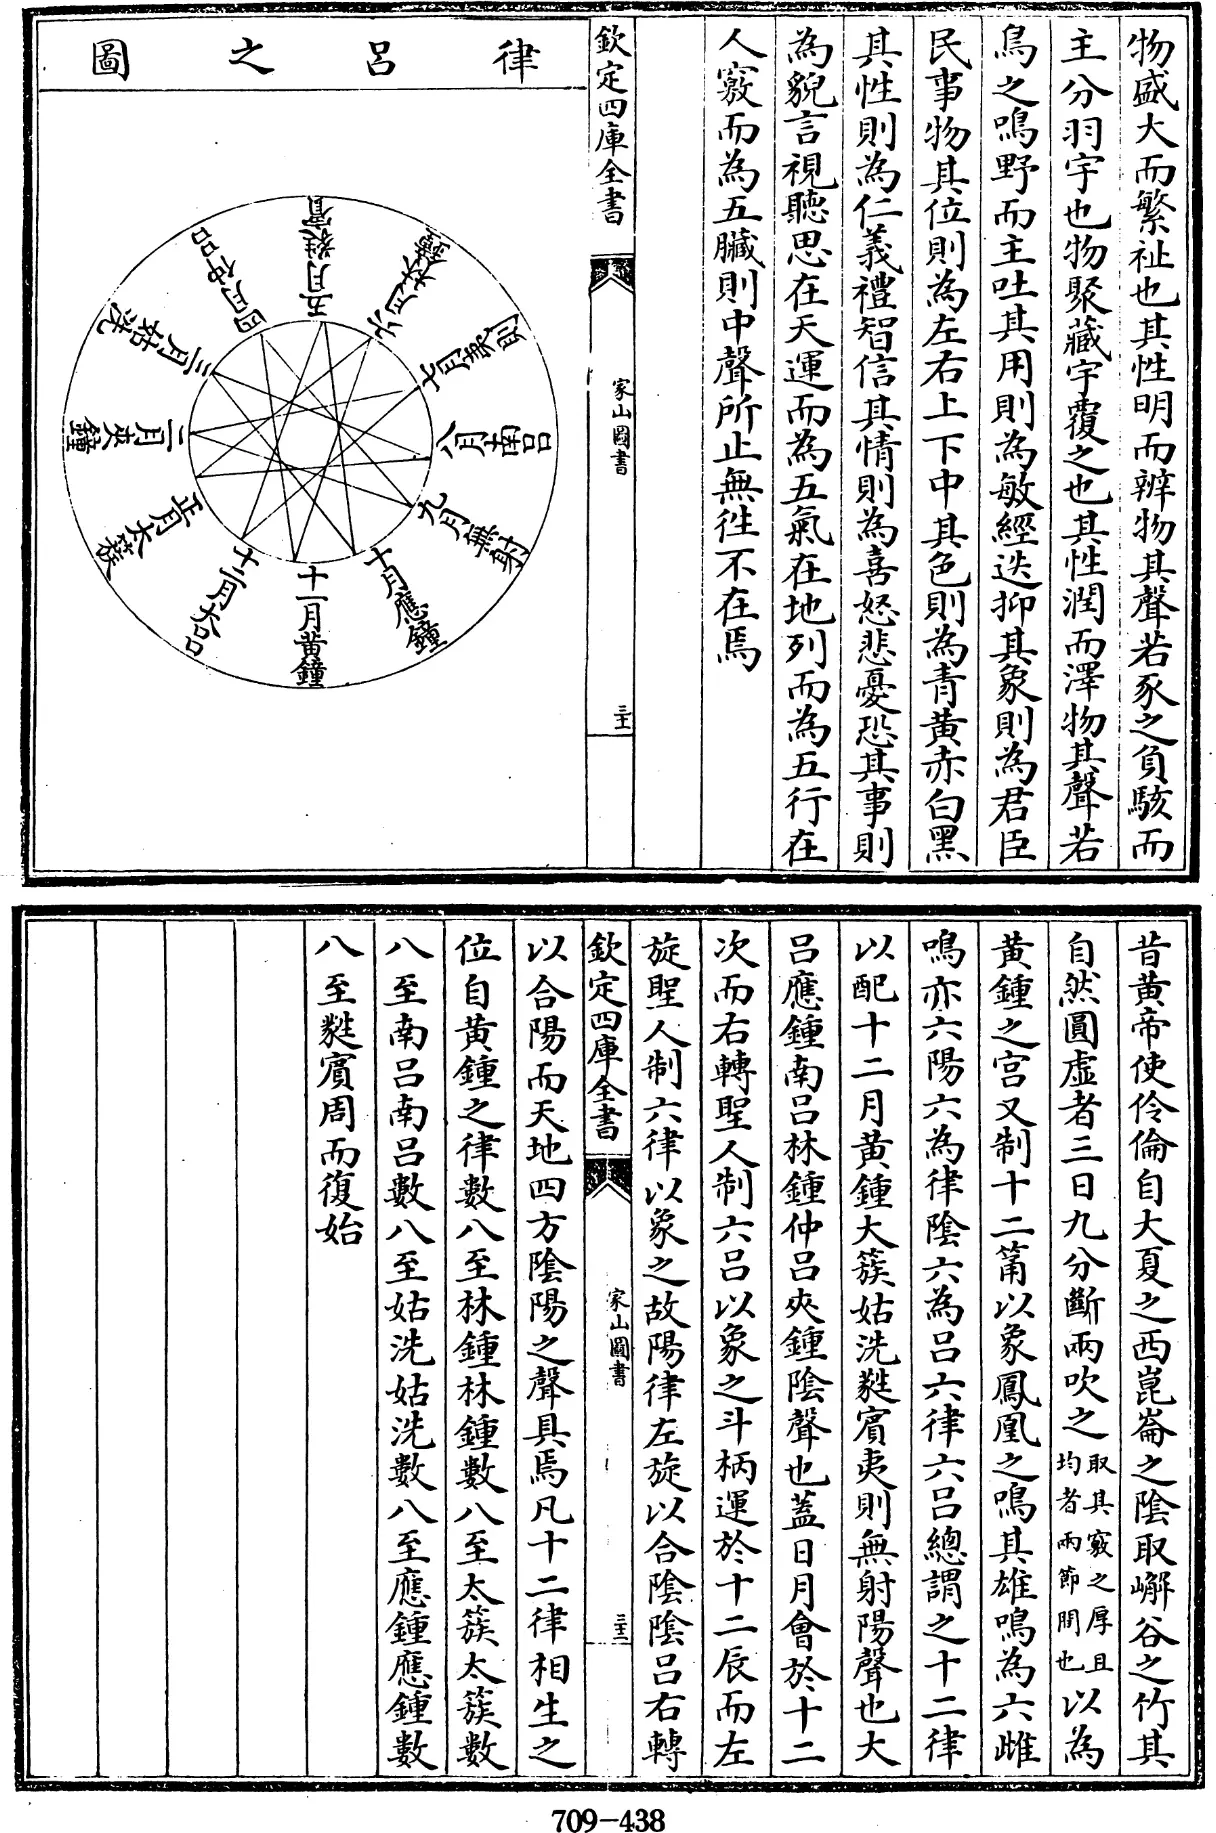 物盛大而繁祉也其性明而辨物其聲若豕之負駭而
主分羽宇也物聚藏宇覆之也其性潤而澤物其聲若
鳥之鳴野而主吐其用則為敏經迭抑其象則為君臣
民事物其位則為左右上下中其色則為青黄赤白黑
其性則為仁義禮智信其情則為喜怒悲憂恐其事則
為貌言視聽思在天運而為五氣在地列而為五行在
人竅而為五臟則中聲所止無徃不在焉
欽定四庫全書
家山圖書
三十一
律呂之圖
五月蕤賓
六月林鐘
七月夷則
八月南呂
九月無射
十月應鐘
十一月黃鐘
十二月大呂
正月太簇
二月夾鐘
三月姑洗
四月仲呂
昔黄帝使伶倫自大夏之西崑崙之陰取嶰谷之竹其
自然圓虛者三日九分斷兩吹之取其竅之厚且均者兩節間也以為
黄鍾之宫又制十二筩以象鳳凰之鳴其雄鳴為六雌
鳴亦六陽六為律陰六為呂六律六呂總謂之十二律
以配十二月黄鍾大簇姑洗蕤賓夷則無射陽聲也大
呂應鍾南呂林鍾仲呂夾鍾陰聲也蓋日月會於十二
次而右轉聖人制六呂以象之斗柄運於十二辰而左
旋聖人制六律以象之故陽律左旋以合陰陰呂右轉
欽定四庫全書
家山圖書
三十二
以合陽而天地四方陰陽之聲具焉凡十二律相生之
位自黄鍾之律數八至林鍾林鍾數八至太簇太簇數
八至南呂南呂數八至姑洗姑洗數八至應鍾應鍾數
八至蕤賓周而復始
709-438